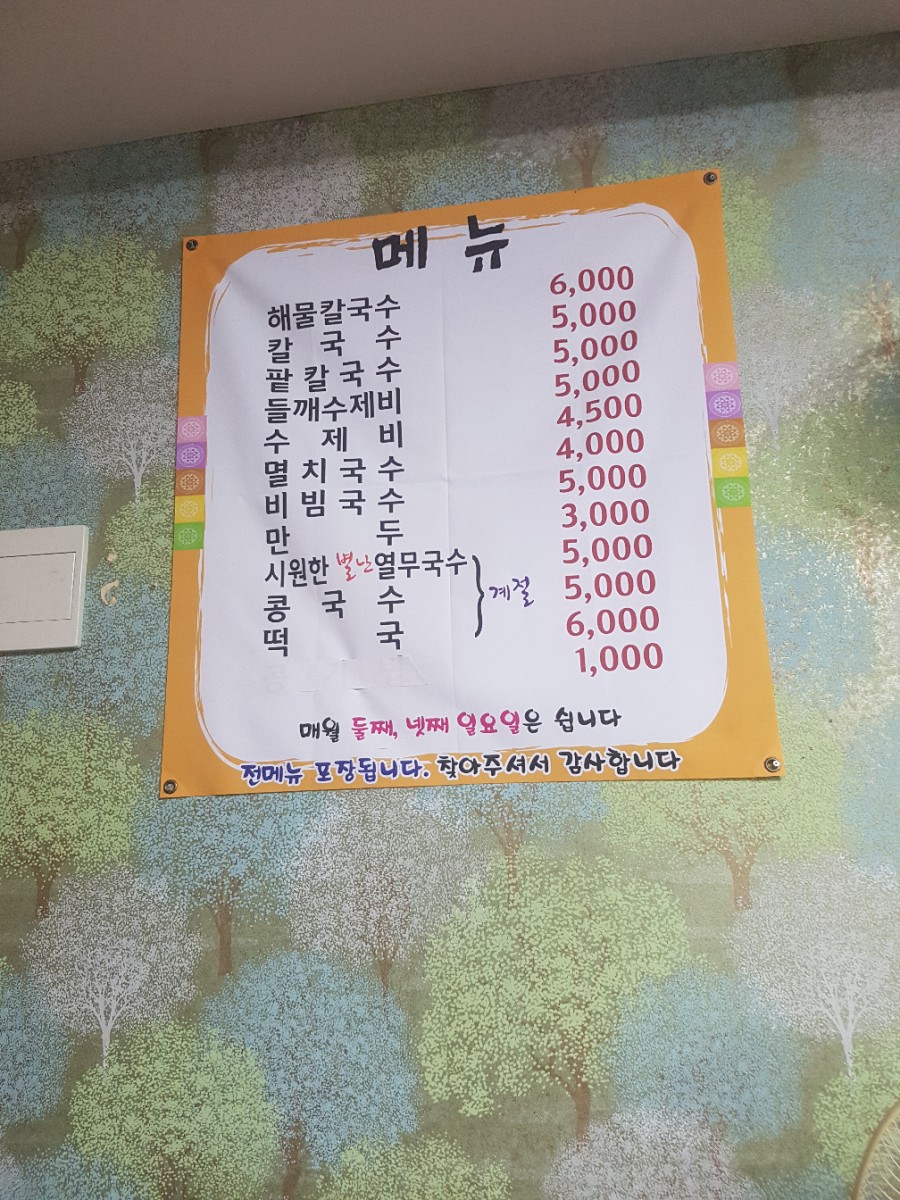 메뉴
해물칼국수 6,000
칼국수 5,000
팥칼국수 5,000
들깨수제비 5,000
수제비 4,500
멸치국수 4,000
비빔국수 5,000
만두 3,000
시원한 별난열무국수 5,000
콩국수 5,000
계절
떡국 6,000
1,000
매월 둘째, 넷째 일요일은 쉽니다
전메뉴 포장됩니다. 찾아주셔서 감사합니다